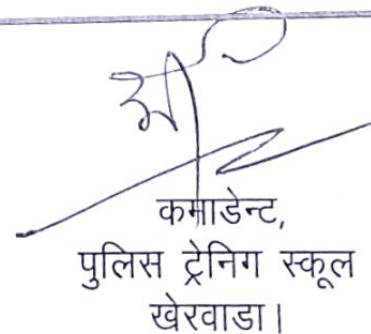 कमाडेन्ट,
पुलिस ट्रेनिग स्कूल
खेरवाडा।